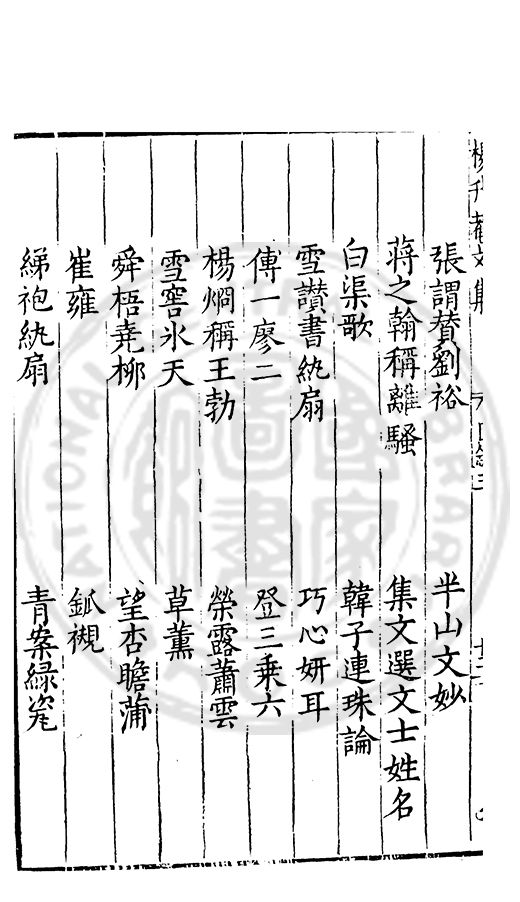 張謂贊劉裕 半山文妙
蔣之翰稱離騷 集文選文士姓名
白渠歌 韓子連珠論
雪讃書紈扇 巧心妍耳
傳一廖二 登三乗六
楊烱稱王勃 榮露蕭雲
雪窖氷天 草薰
舜梧堯栁 望杏瞻蒲
崔雍 觚䙟
綈袍紈扇 青案緑瓷